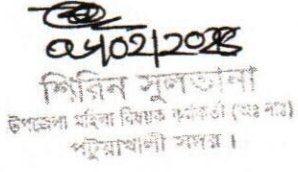 শিরিন সুলতানা
উপজেলা মহিলা বিষয়ক কর্মকর্তা (অঃ দাঃ)
পটুয়াখালী সদর।